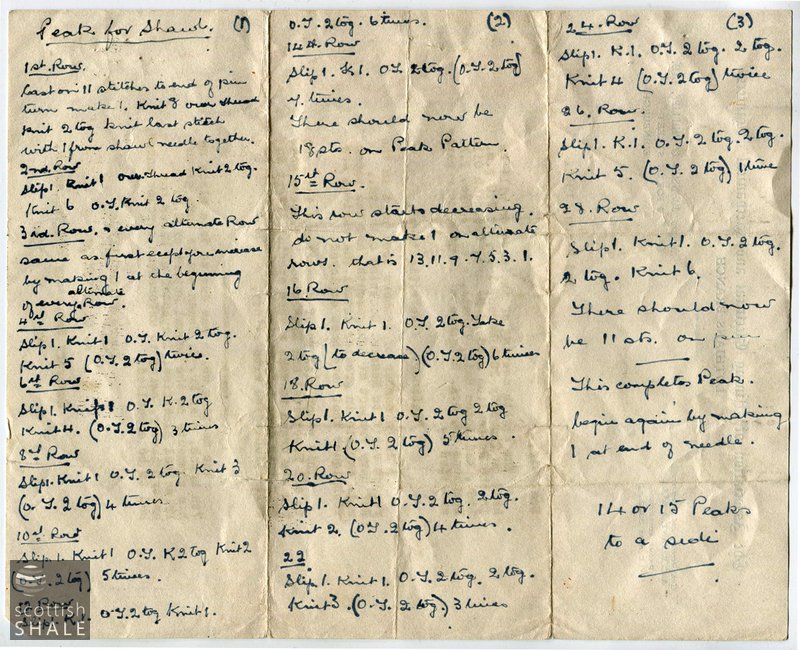 Peak for Shawl. (1)
1st. Row.
Cast on 11 stitches to end of pin
turn make 1. Knit 8 over thread
Knit 2 tog knit last stitch
with 1 from shawl needle together.
2nd. Row
Slip 1. Knit 1 over thread Knit 2 tog.
Knit 6 O.T. Knit 2 tog.
3rd. Row. & every alternate Row
same as first except you increase
by making 1 at the beginning
of every alternate Row.
4th Row
Slip 1. Knit 1 O.T. Knit 2 tog.
Knit 5 (O.T. 2 tog) twice.
6th Row
Slip 1. Knit 1 O.T. K. 2 tog
Knit 4. (O.T. 2 tog) 3 times
8th Row
Slip 1. Knit 1 O.T. 2 tog. Knit 3
(O.T. 2 tog) 4 times
10th Row
Slip 1. Knit 1 O.T. K 2 tog Knit 2
(O.T. 2 tog) 5 times.
12 Row
Slip 1. K.1. O.T. 2 tog Knit 1.
O.T. 2 tog. 6 times. (2)
14th. Row
Slip 1. K 1. O.T. 2 tog. (O.T. 2 tog)
7 times.
There should now be
18 sts. on Peak Pattern.
15th Row.
This row starts decreasing.
do not make 1 on alternate
rows. that is 13. 11. 9. 7. 5. 3. 1.
16. Row
Slip 1. Knit 1. O.T. 2 tog. Take
2 tog (to decrease) (O.T. 2 tog) 6 times
18. Row
Slip 1. Knit 1 O.T. 2 tog 2 tog
Knit 1 (O.T. 2 tog) 5 times.
20. Row
Slip 1. Knit 1 O.T. 2 tog. 2 tog.
Knit 2. (O.T. 2 tog) 4 times.
22
Slip 1. Knit 1. O.T. 2 tog. 2 tog.
Knit 3. (O.T. 2 tog.) 3 times
24. Row (3)
Slip 1. K.1. O.T. 2 tog. 2 tog.
Knit 4 (O.T. 2 tog) twice
26. Row.
Slip 1. K.1. O.T. 2 tog. 2 tog.
Knit 5. (O.T. 2 tog) 1 time
28. Row
Slip 1. Knit 1. O.T. 2 tog.
2 tog. Knit 6.
There should now
be 11 sts. on pin
This completes Peak.
begin again by making
1 at end of needle.
14 or 15 Peaks
to a side
scottish
SHALE